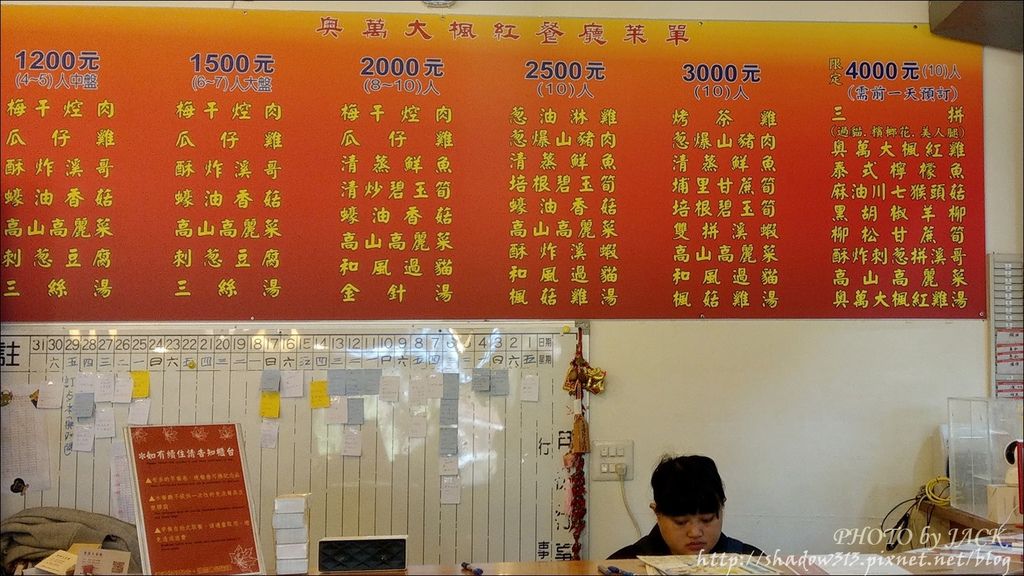 奧萬大楓紅餐廳菜單
1200元
(4~5)人中盤
梅干焢肉
瓜仔雞
酥炸溪哥
蠔油香菇
高山高麗菜
刺蔥豆腐
三絲湯
1500元
(6~7)人大盤
梅干焢肉
瓜仔雞
酥炸溪哥
蠔油香菇
高山高麗菜
刺蔥豆腐
三絲湯
2000元
(8~10)人
梅干焢肉
瓜仔雞
清蒸鮮魚
清炒碧玉筍
蠔油香菇
高山高麗菜
和風過貓
金針湯
2500元
(10)人
蔥油淋雞
蔥爆山豬肉
清蒸鮮魚
培根碧玉筍
蠔油香菇
高山高麗菜
酥炸溪蝦
和風過貓
楓菇雞湯
3000元
(10)人
烤茶雞
蔥爆山豬肉
清蒸鮮魚
埔里甘蔗筍
培根碧玉筍
雙拼溪蝦
高山高麗菜
和風過貓
楓菇雞湯
限定4000元(10)人
(需前一天預訂)
三拼
(過貓、檳榔花、美人腿)
奧萬大楓紅雞
泰式檸檬魚
麻油川七猴頭菇
黑胡椒羊柳
柳松甘蔗筍
酥炸刺蔥拼溪哥
高山高麗菜
奧萬大楓紅雞湯
註 31 30 29 28 27 26 25 24 23 22 21 20 19 18 17 16 15 14 13 12 11 10 9 8 7 6 5 4 3 2 1 日期
星期
行
事
*如有續住請告知櫃台
PHOTO by JACK
http://shadow313.pixnet.net/blog